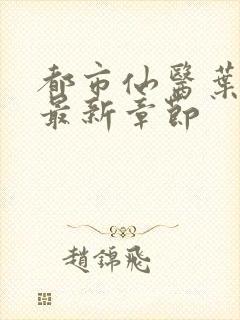 都市仙醫葉
最新章節
趙錦飛